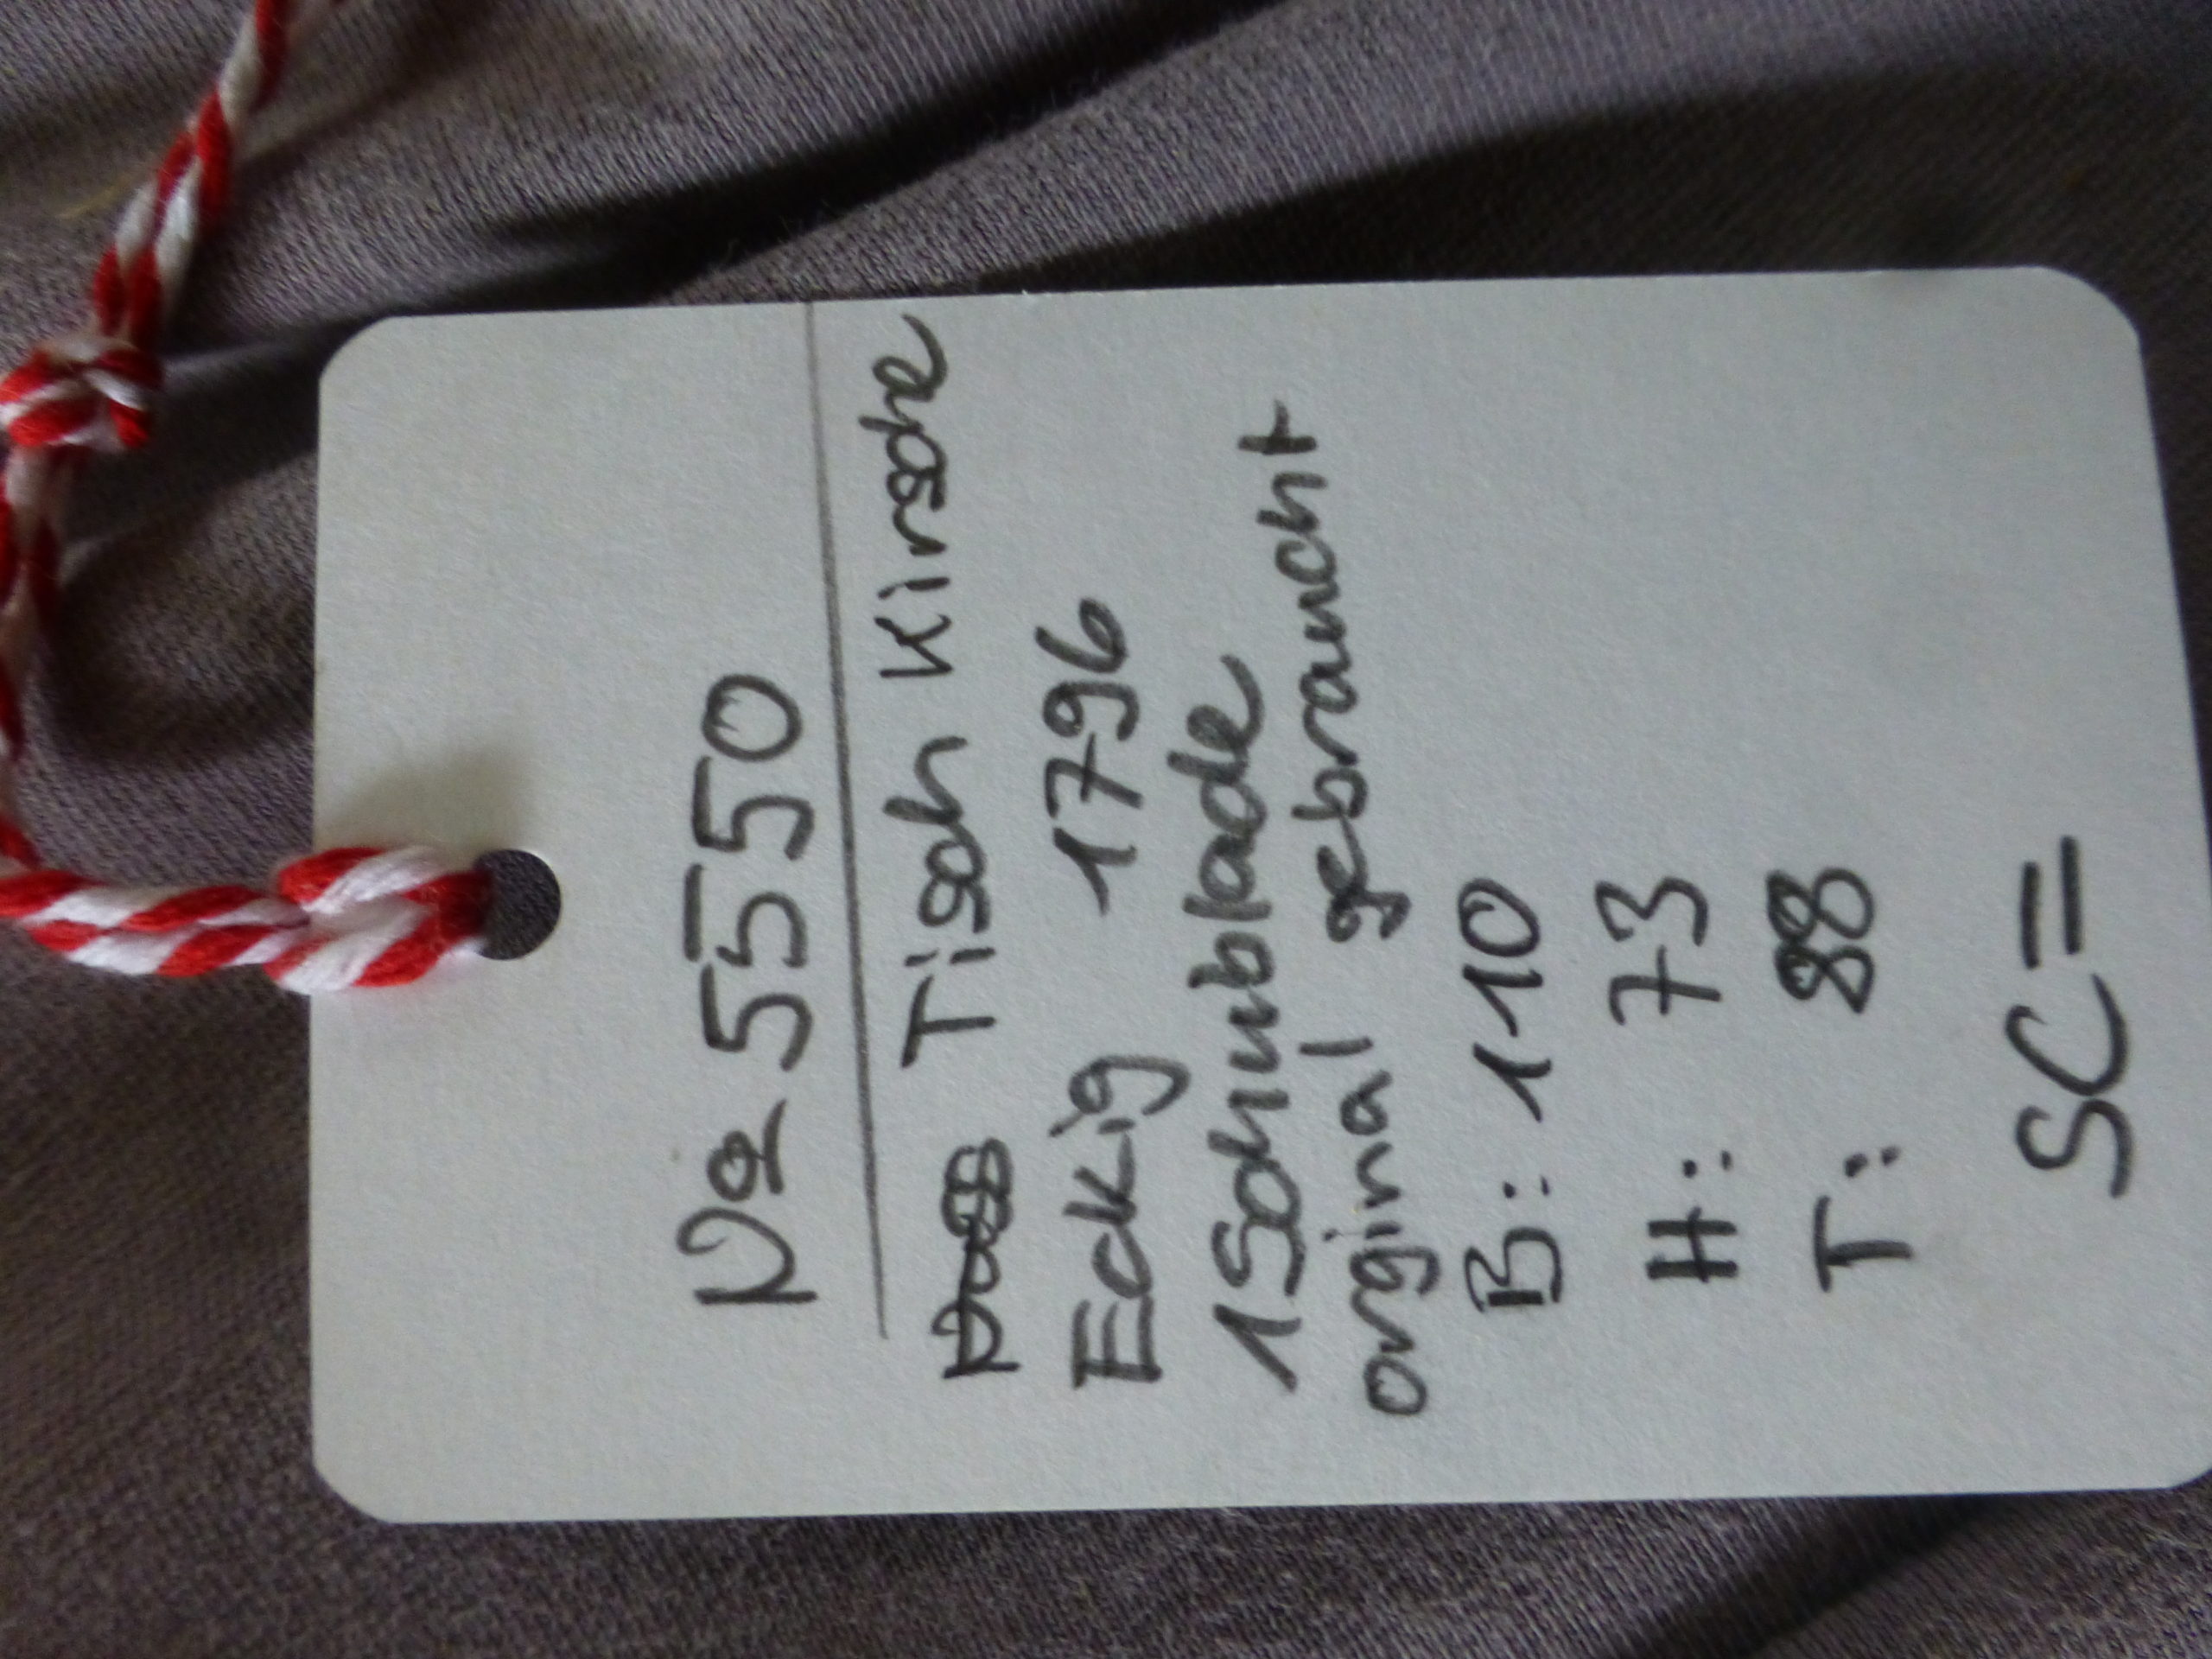 No 5550
Tisch Kirsche
Eckig 1796
1 Schubblade
orginal gebraucht
B: 110
H: 73
T: 88
SC=